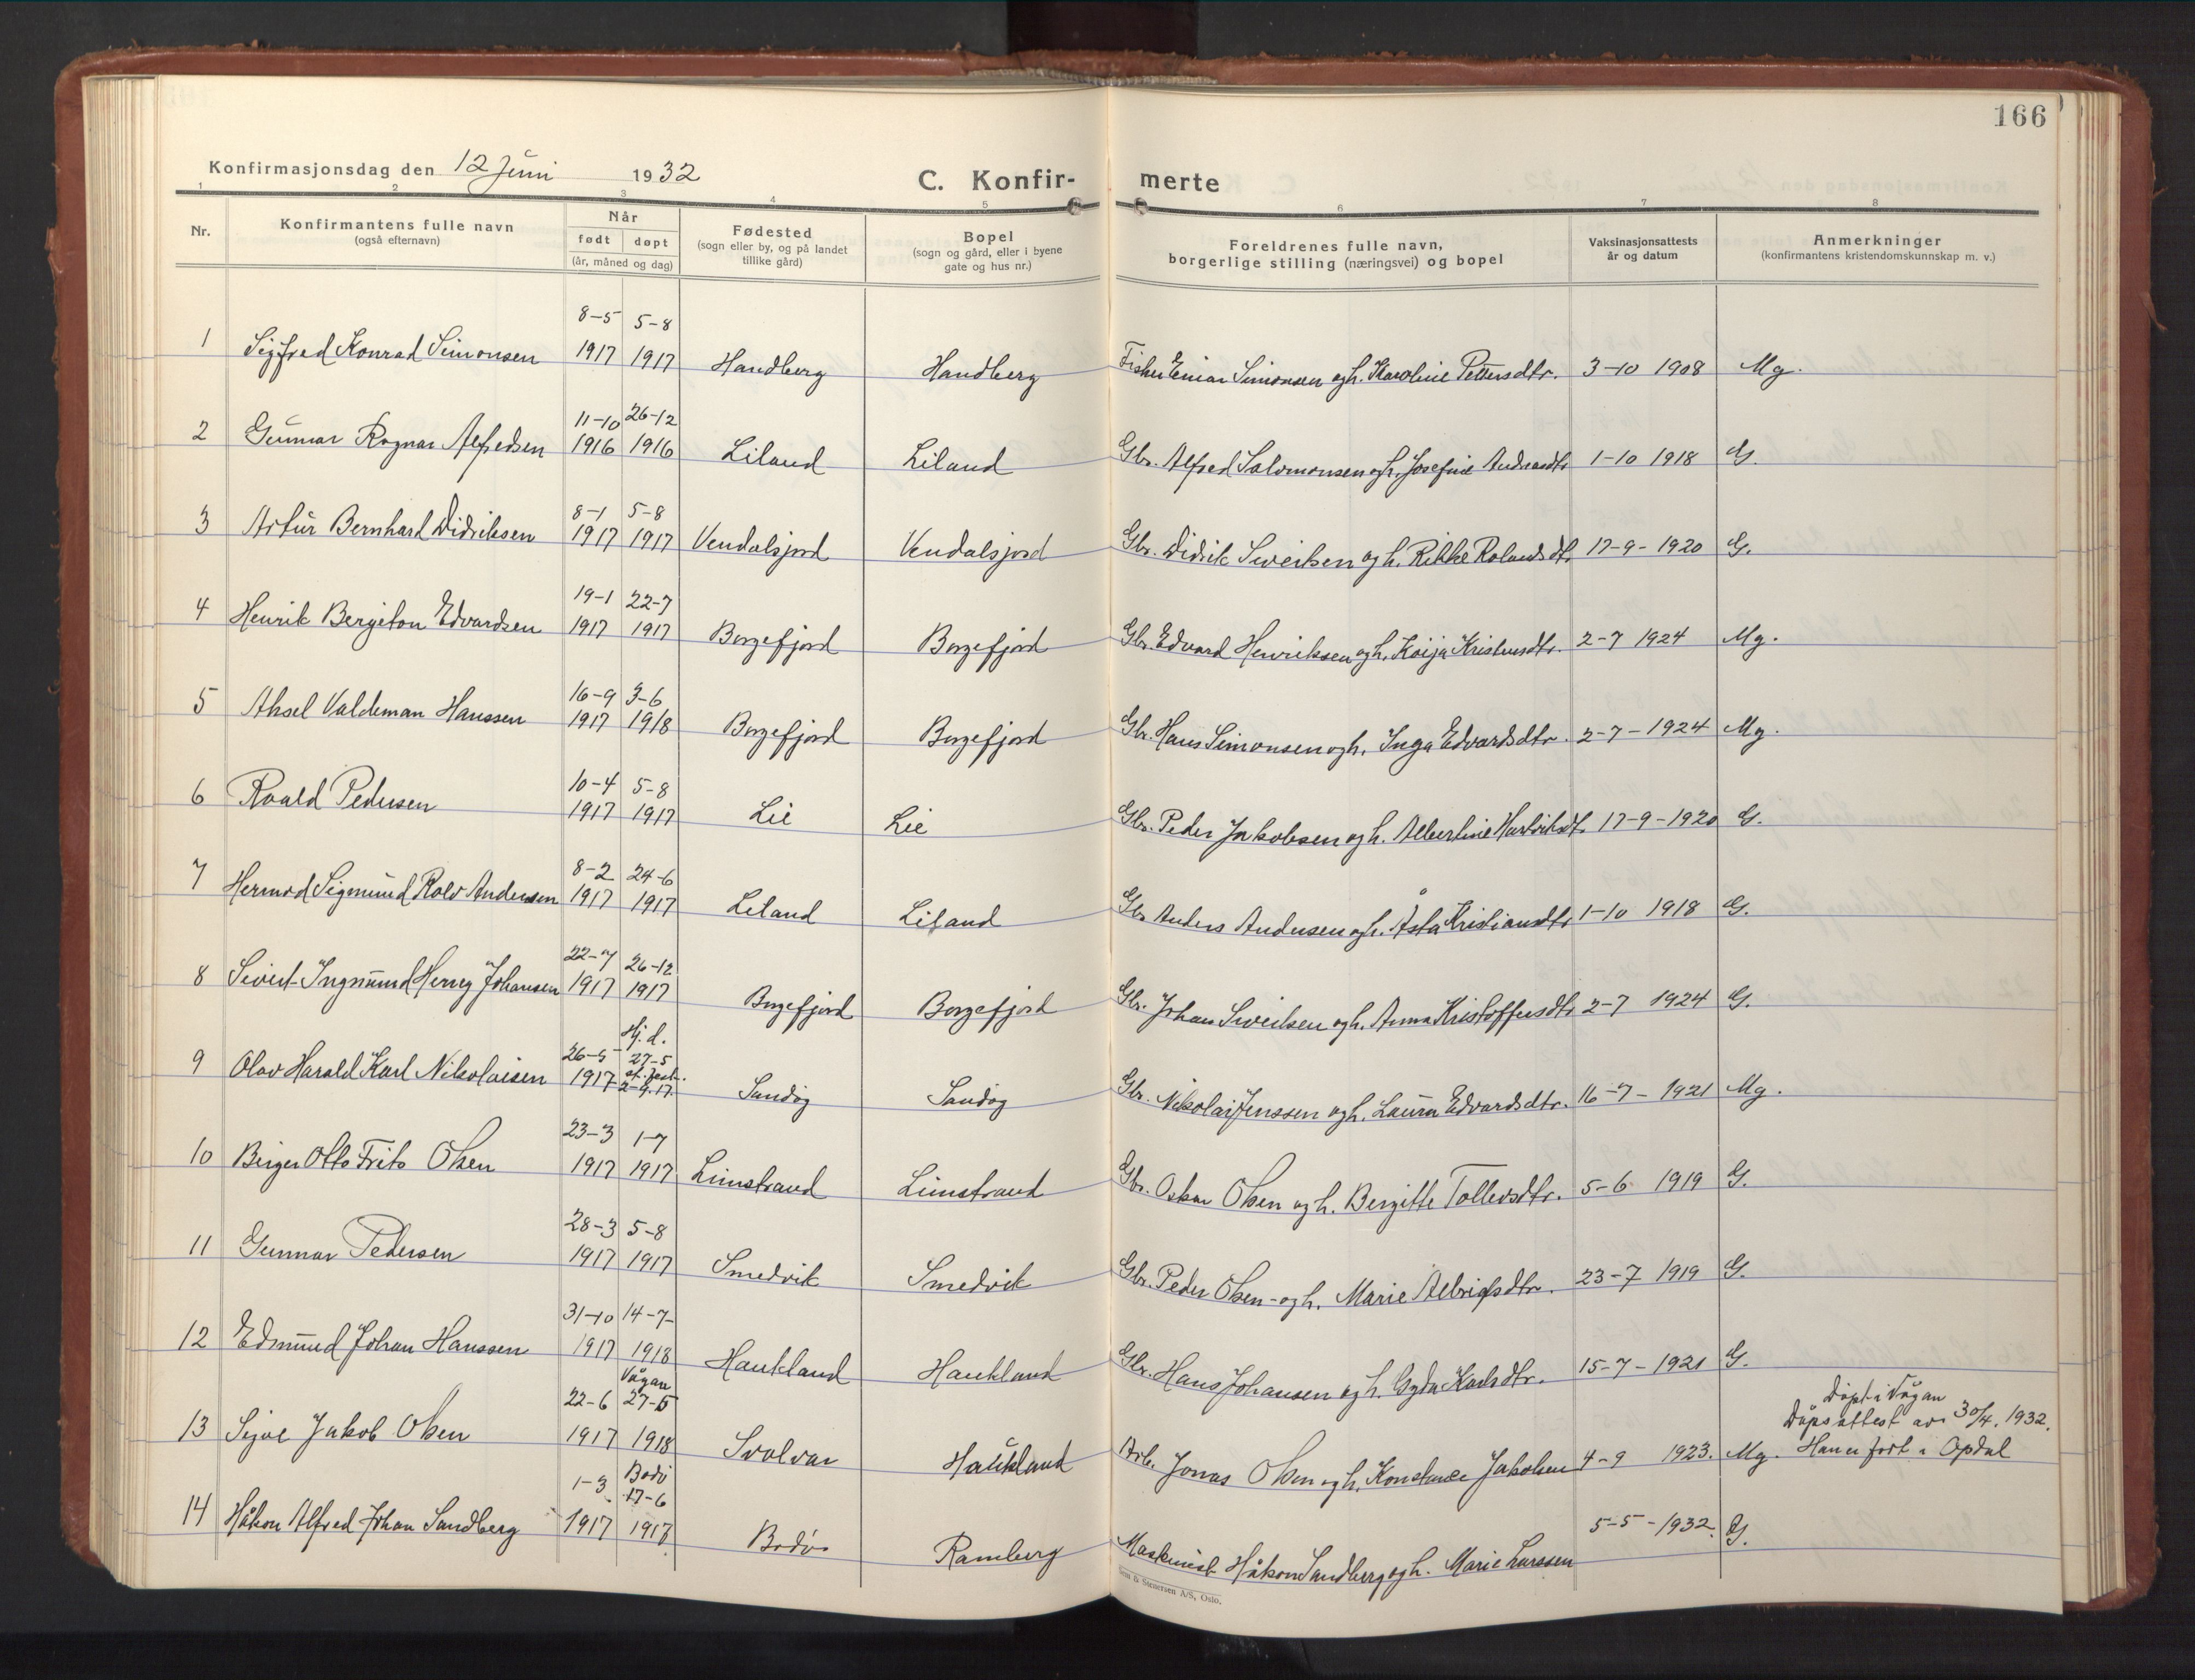 166
Konfirmasjonsdag den 12 Juni 1932
C. Konfir- merte
1 2 3 4 5 6 7 8
Nr.
Konfirmantens fulle navn
(også efternavn)
Når
født døpt
(år, måned og dag)
Fødested
(sogn eller by, og på landet
tillike gård)
Bopel
(sogn og gård, eller i byene
gate og hus nr.)
Foreldrenes fulle navn,
borgerlige stilling (næringsvei) og bopel
Vaksinasjonsattests
år og datum
Anmerkninger
(konfirmantens kristendomskunnskap m. v.)
8-5 5-8
1 Sigfred Konrad Simonsen 1917 1917 Handberg Handberg Fisker Einar Simonsen og h. Karoline Pettersdtr. 3-10 1908 Mg.
11-10 26-12
2 Gunnar Ragnar Alfredsen 1916 1916 Liland Liland Gbr. Alfred Salomonsen og h. Josefine Andreasdtr 1-10 1918 G.
8-1 5-8
3 Artur Bernhard Didriksen 1917 1917 Vendalsjord Vendalsjord Gbr. Didrik Siversen og h. Rikke Rolandsdtr 17-9-1920 G.
19-1 22-7
4 Henrik Bergiton Edvardsen 1917 1917 Borgefjord Borgefjord Gbr. Edvard Henriksen og h. 2-7 1924 Mg.
16-9 3-6
5 Aksel Valdemar Hanssen 1917 1918 Borgefjord Borgefjord Gbr. Hans Simonsen og h. Inga Edvardsdtr. 2-7-1924 Mg.
10-4 5-8
6 Roald Pedersen 1917 1917 Lie Lie Gbr. Peder Jakobsen og h. Albertine Hartviksdtr. 17-9-1920 G.
8-2 24-6
7 Hermod Sigmund Rolv Andersen 1917 1917 Liland Liland Gbr Anders Andersen og h. Åsta Kristiansdtr 1-10 1918 G.
22-7 26-12
8 Sivert Ingmund Henry Johansen 1917 1917 Borgefjord Borgefjord Gbr. Johan Sivertsen og h. Anna Kristoffersdtr 2-7 1924 G.
Hj. d.
26-5 27-5
9 Olav Harald Karl Nikolaisen 1917 st. fest. 2-9.17. Sandøy Sandøy Gbr. Nikolai Jenssen og h. Laura Edvardsdtr. 16-7-1921 Mg.
23-3 1-7
10 Birger Otto Frits Olsen 1917 1917 Limstrand Limstrand Gbr. Oskar Olsen og h. Bergitte Tollevsdtr. 5-6 1919 G.
28-3 5-8
11 Gunnar Pedersen 1917 1917 Smedvik Smedvik Gbr. Peder Olsen og h. Marie Albrigtsdtr. 23-7 1919 G.
31-10 14-7
12 Edmund Johan Hanssen 1917 1918 Haukland Haukland Gbr. Hans Johansen og h. Gyda Karlsdtr. 15-7-1921 G.
Vågan
22-6 27-5
Døpt i Vågan
Dåpsattest av 30/4. 1932.
13 Jakob Olsen 1917 1918 Svolvær Haukland Arb. Jonas Olsen og h. Konstanse Jakobsen 4-9 1923. Mg. Han er født i Opdal
Bodø
1-3 17-6
14 Håkon Alfred Johan Sandberg 1917 1917 Bodø Ramberg Maskinist Håkon Sandberg og h. Marie Larssen 5-5-1932. G.
Sem & Stenersen A/S, Oslo.